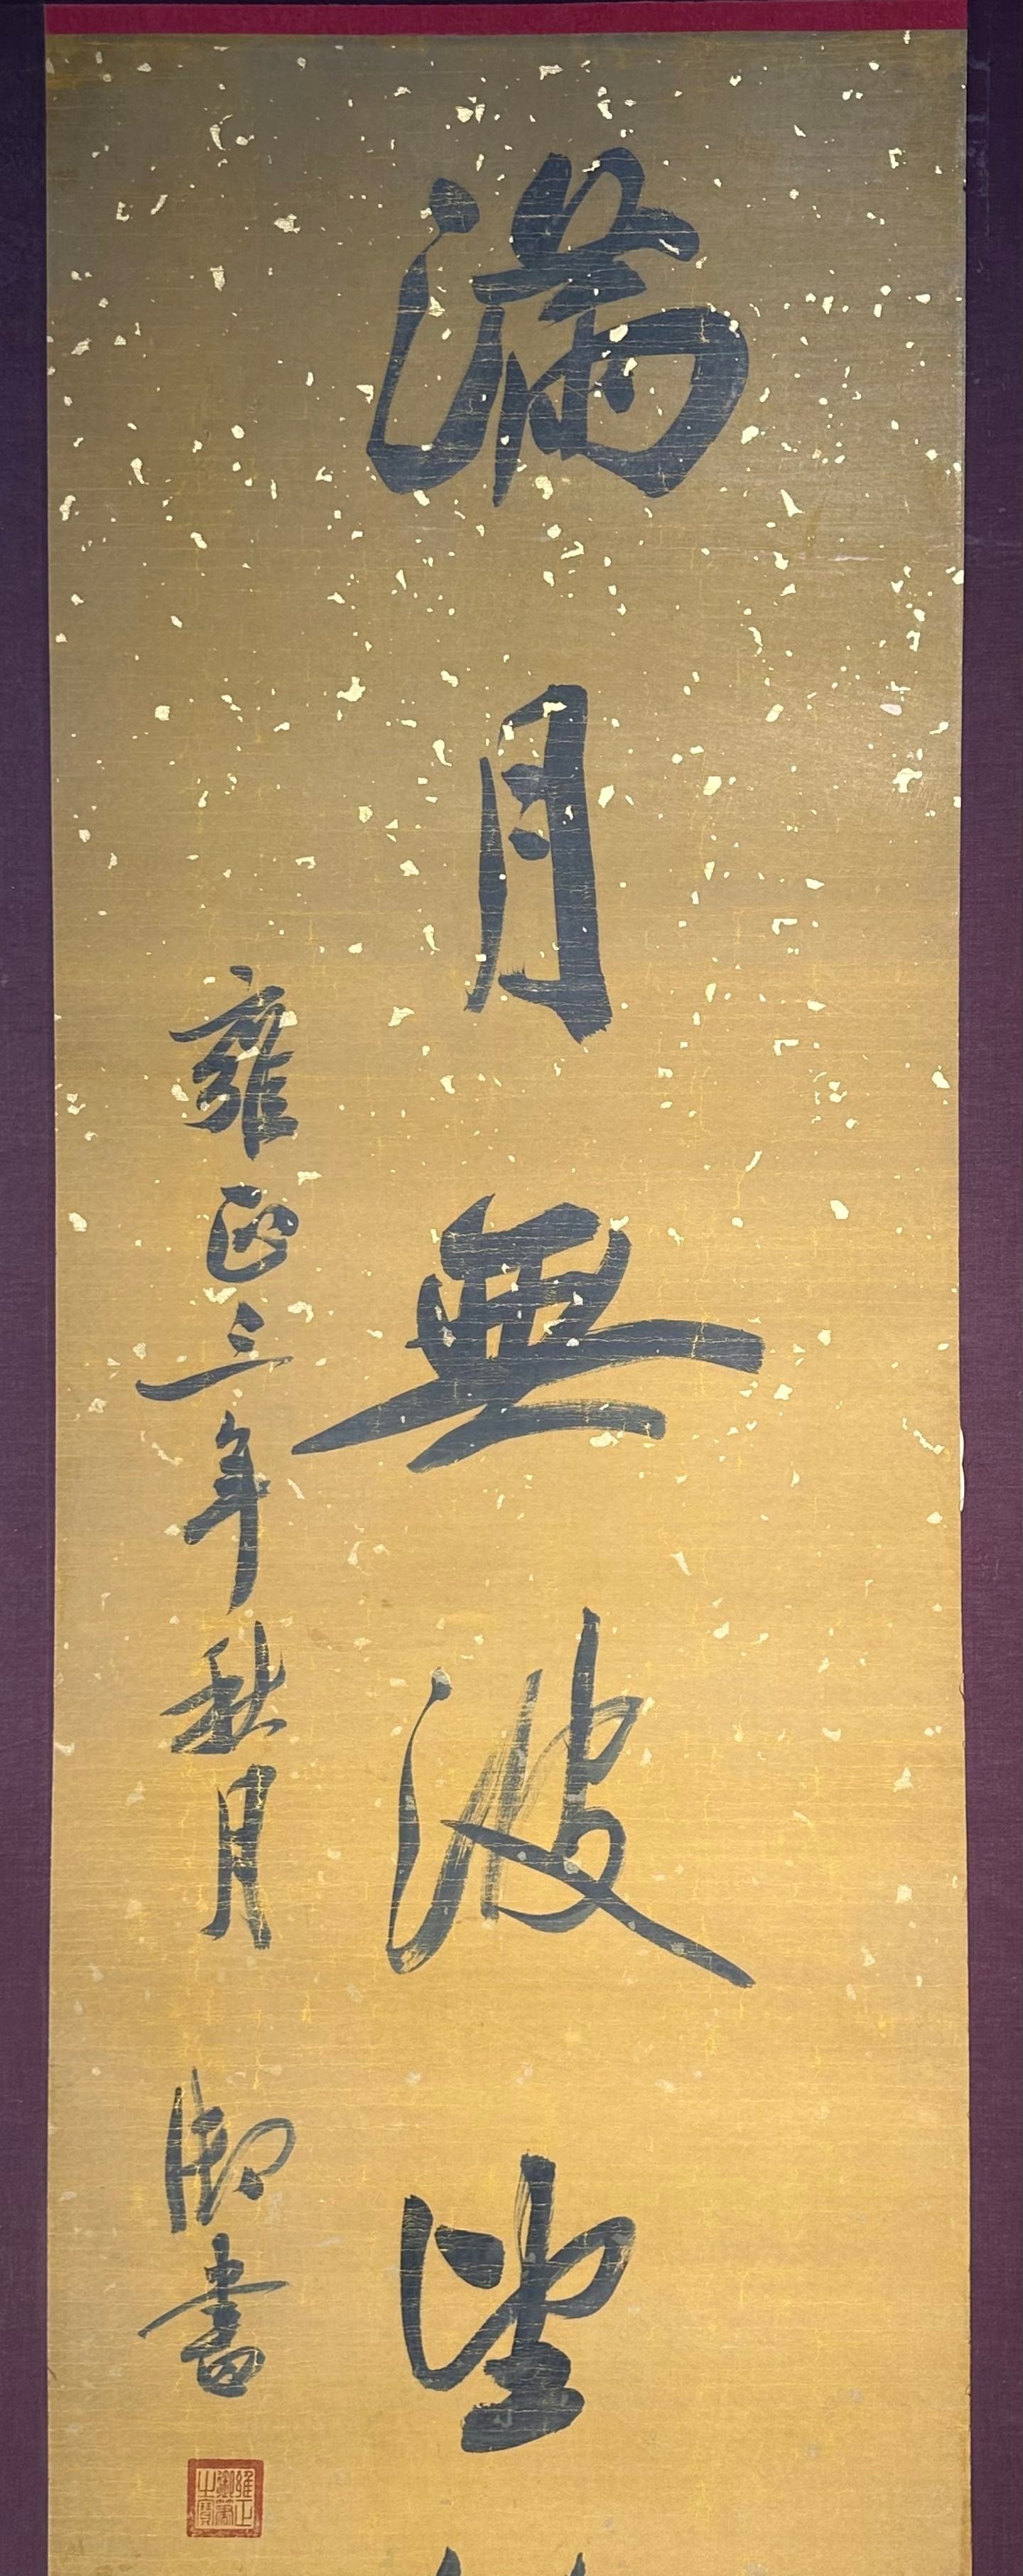 滿月無波望
雍正三年秋月
御書
雍正御筆之寶